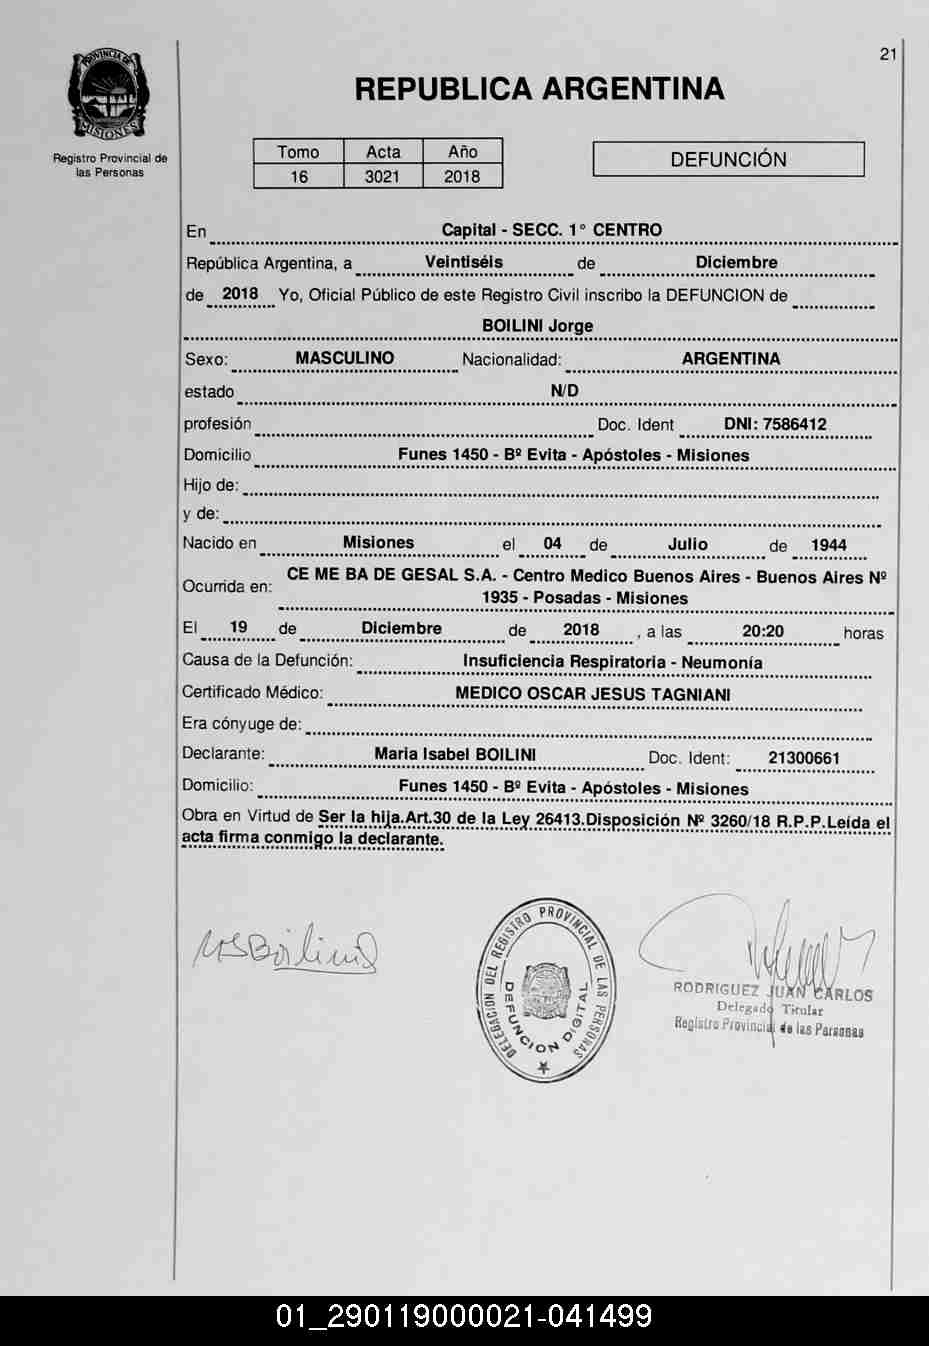 21
PROVINCIA DE
MISIONES
Registro Provincial de
las Personas
REPUBLICA ARGENTINA
Tomo Acta Año
16 3021 2018
DEFUNCIÓN
En Capital - SECC. 1° CENTRO
República Argentina, a Veintiséis de Diciembre
de 2018 Yo, Oficial Público de este Registro Civil inscribo la DEFUNCION de
BOILINI Jorge
Sexo: MASCULINO Nacionalidad: ARGENTINA
estado N/D
profesión Doc. Ident DNI: 7586412
Domicilio Funes 1450 - Bº Evita - Apóstoles - Misiones
Hijo de:
y de:
Nacido en Misiones el 04 de Julio de 1944
Ocurrida en: CE ME BA DE GESAL S.A. - Centro Medico Buenos Aires - Buenos Aires Nº
1935 - Posadas - Misiones
El 19 de Diciembre de 2018 , a las 20:20 horas
Causa de la Defunción: Insuficiencia Respiratoria - Neumonía
Certificado Médico: MEDICO OSCAR JESUS TAGNIANI
Era cónyuge de:
Declarante: Maria Isabel BOILINI Doc. Ident: 21300661
Domicilio: Funes 1450 - Bº Evita - Apóstoles - Misiones
Obra en Virtud de Ser la hija.Art.30 de la Ley 26413.Disposición Nº 3260/18 R.P.P.Leída el
acta firma conmigo la declarante.
DELEGACION DEL REGISTRO PROVINCIAL DE LAS PERSONAS
DEFUNCION DIGITAL
RODRIGUEZ JUAN CARLOS
Delegado Titular
Registro Provincial de las Personas
01_290119000021-041499